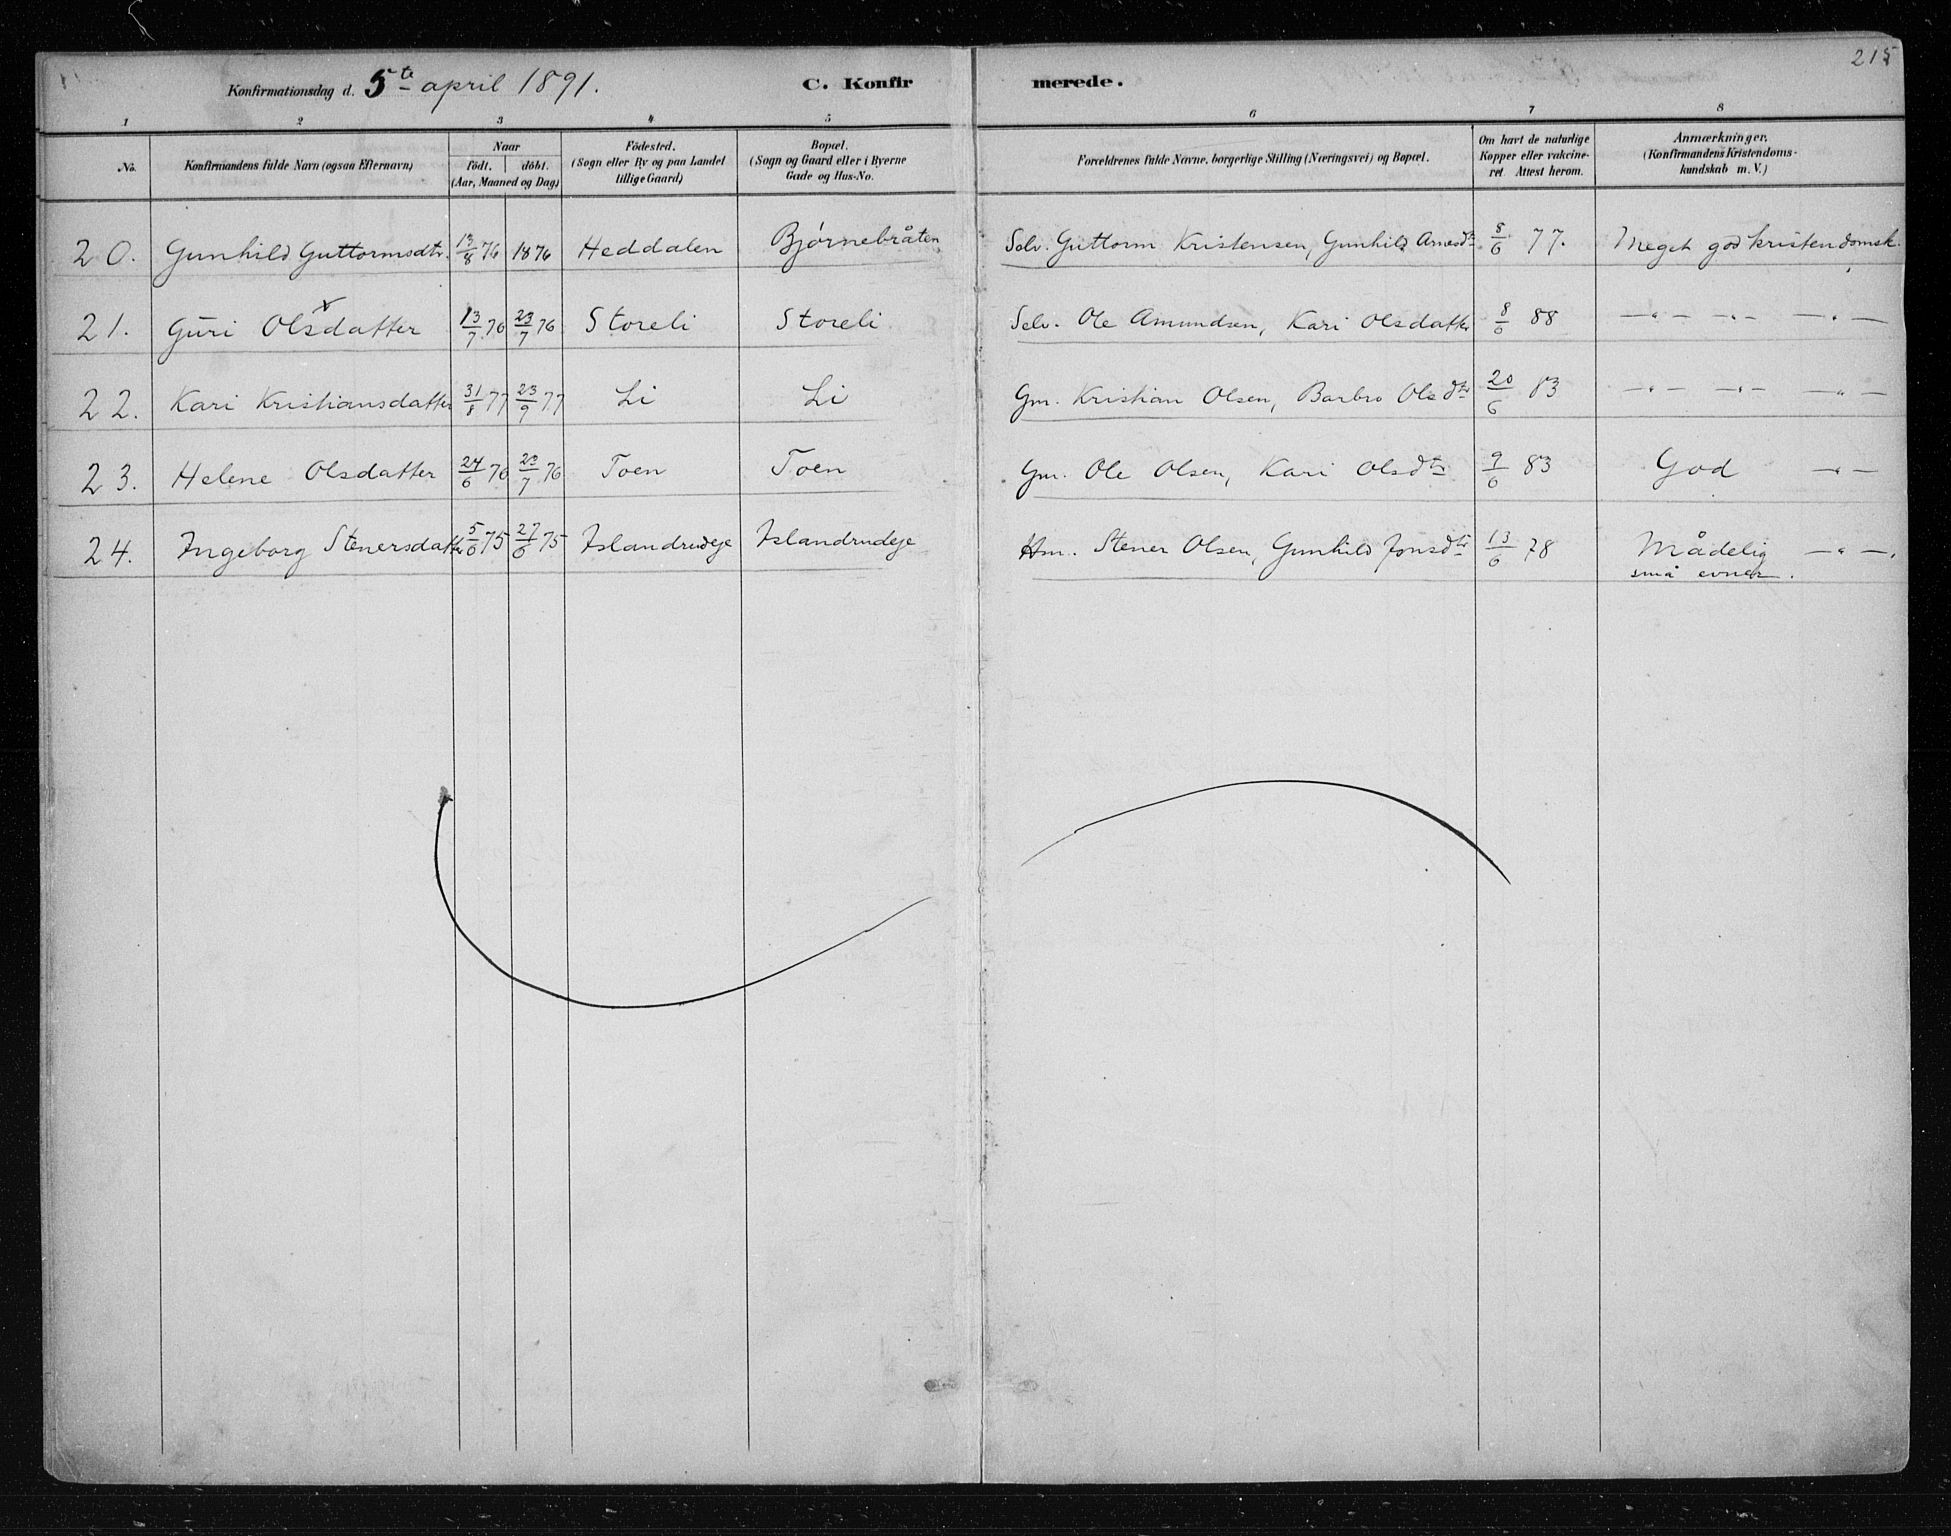 215
Konfirmationsdag d. 5te april 1891. C. Konfirmerede.
1 2 3 4 5 6 7 8
No. Konfirmandens fulde Navn (ogsaa Efternavn) Naar født. døbt. (Aar, Maaned og Dag) Fødested. (Sogn eller By og paa Landet tillige Gaard) Bopæl. (Sogn og Gaard eller i Byerne Gade og Hus-No. Forældrenes fulde Navne, borgerlige Stilling (Næringsvei) og Bopæl. Om havt de naturlige Kopper eller vakcineret Attest herom. Anmærkninger. (Konfirmandens Kristendomskundskab m. V.)
20. Gunhild Guttormsdtr. 13/8 76 1876 Heddalen Bjørnebråten Selv. Guttorm Kristensen, Gunhild Arnesdtr 8/6 77. Meget god kristendomsk.
21. Guri Olsdatter 13/7 76 23/7 76 Storeli Storeli Selv. Ole Amundsen, Kari Olsdatter 8/6 88 —"— —"— —"—
22. Kari Kristiansdatter 31/8 77 23/9 77 Li Li Gm. Kristian Olsen, Barbro Olsdtr 20/6 83 —"— —"— —"—
23. Helene Olsdatter 24/6 76 23/7 76 Toen Toen Gm. Ole Olsen, Kari Olsdtr 9/6 83 God —"—
24. Ingeborg Stenersdatter 5/6 75 27/6 75 Islandrudeje Islandrudeje Hm. Stener Olsen, Gunhild Jonsdtr 13/6 78 Mådelig —"—.
små evner.